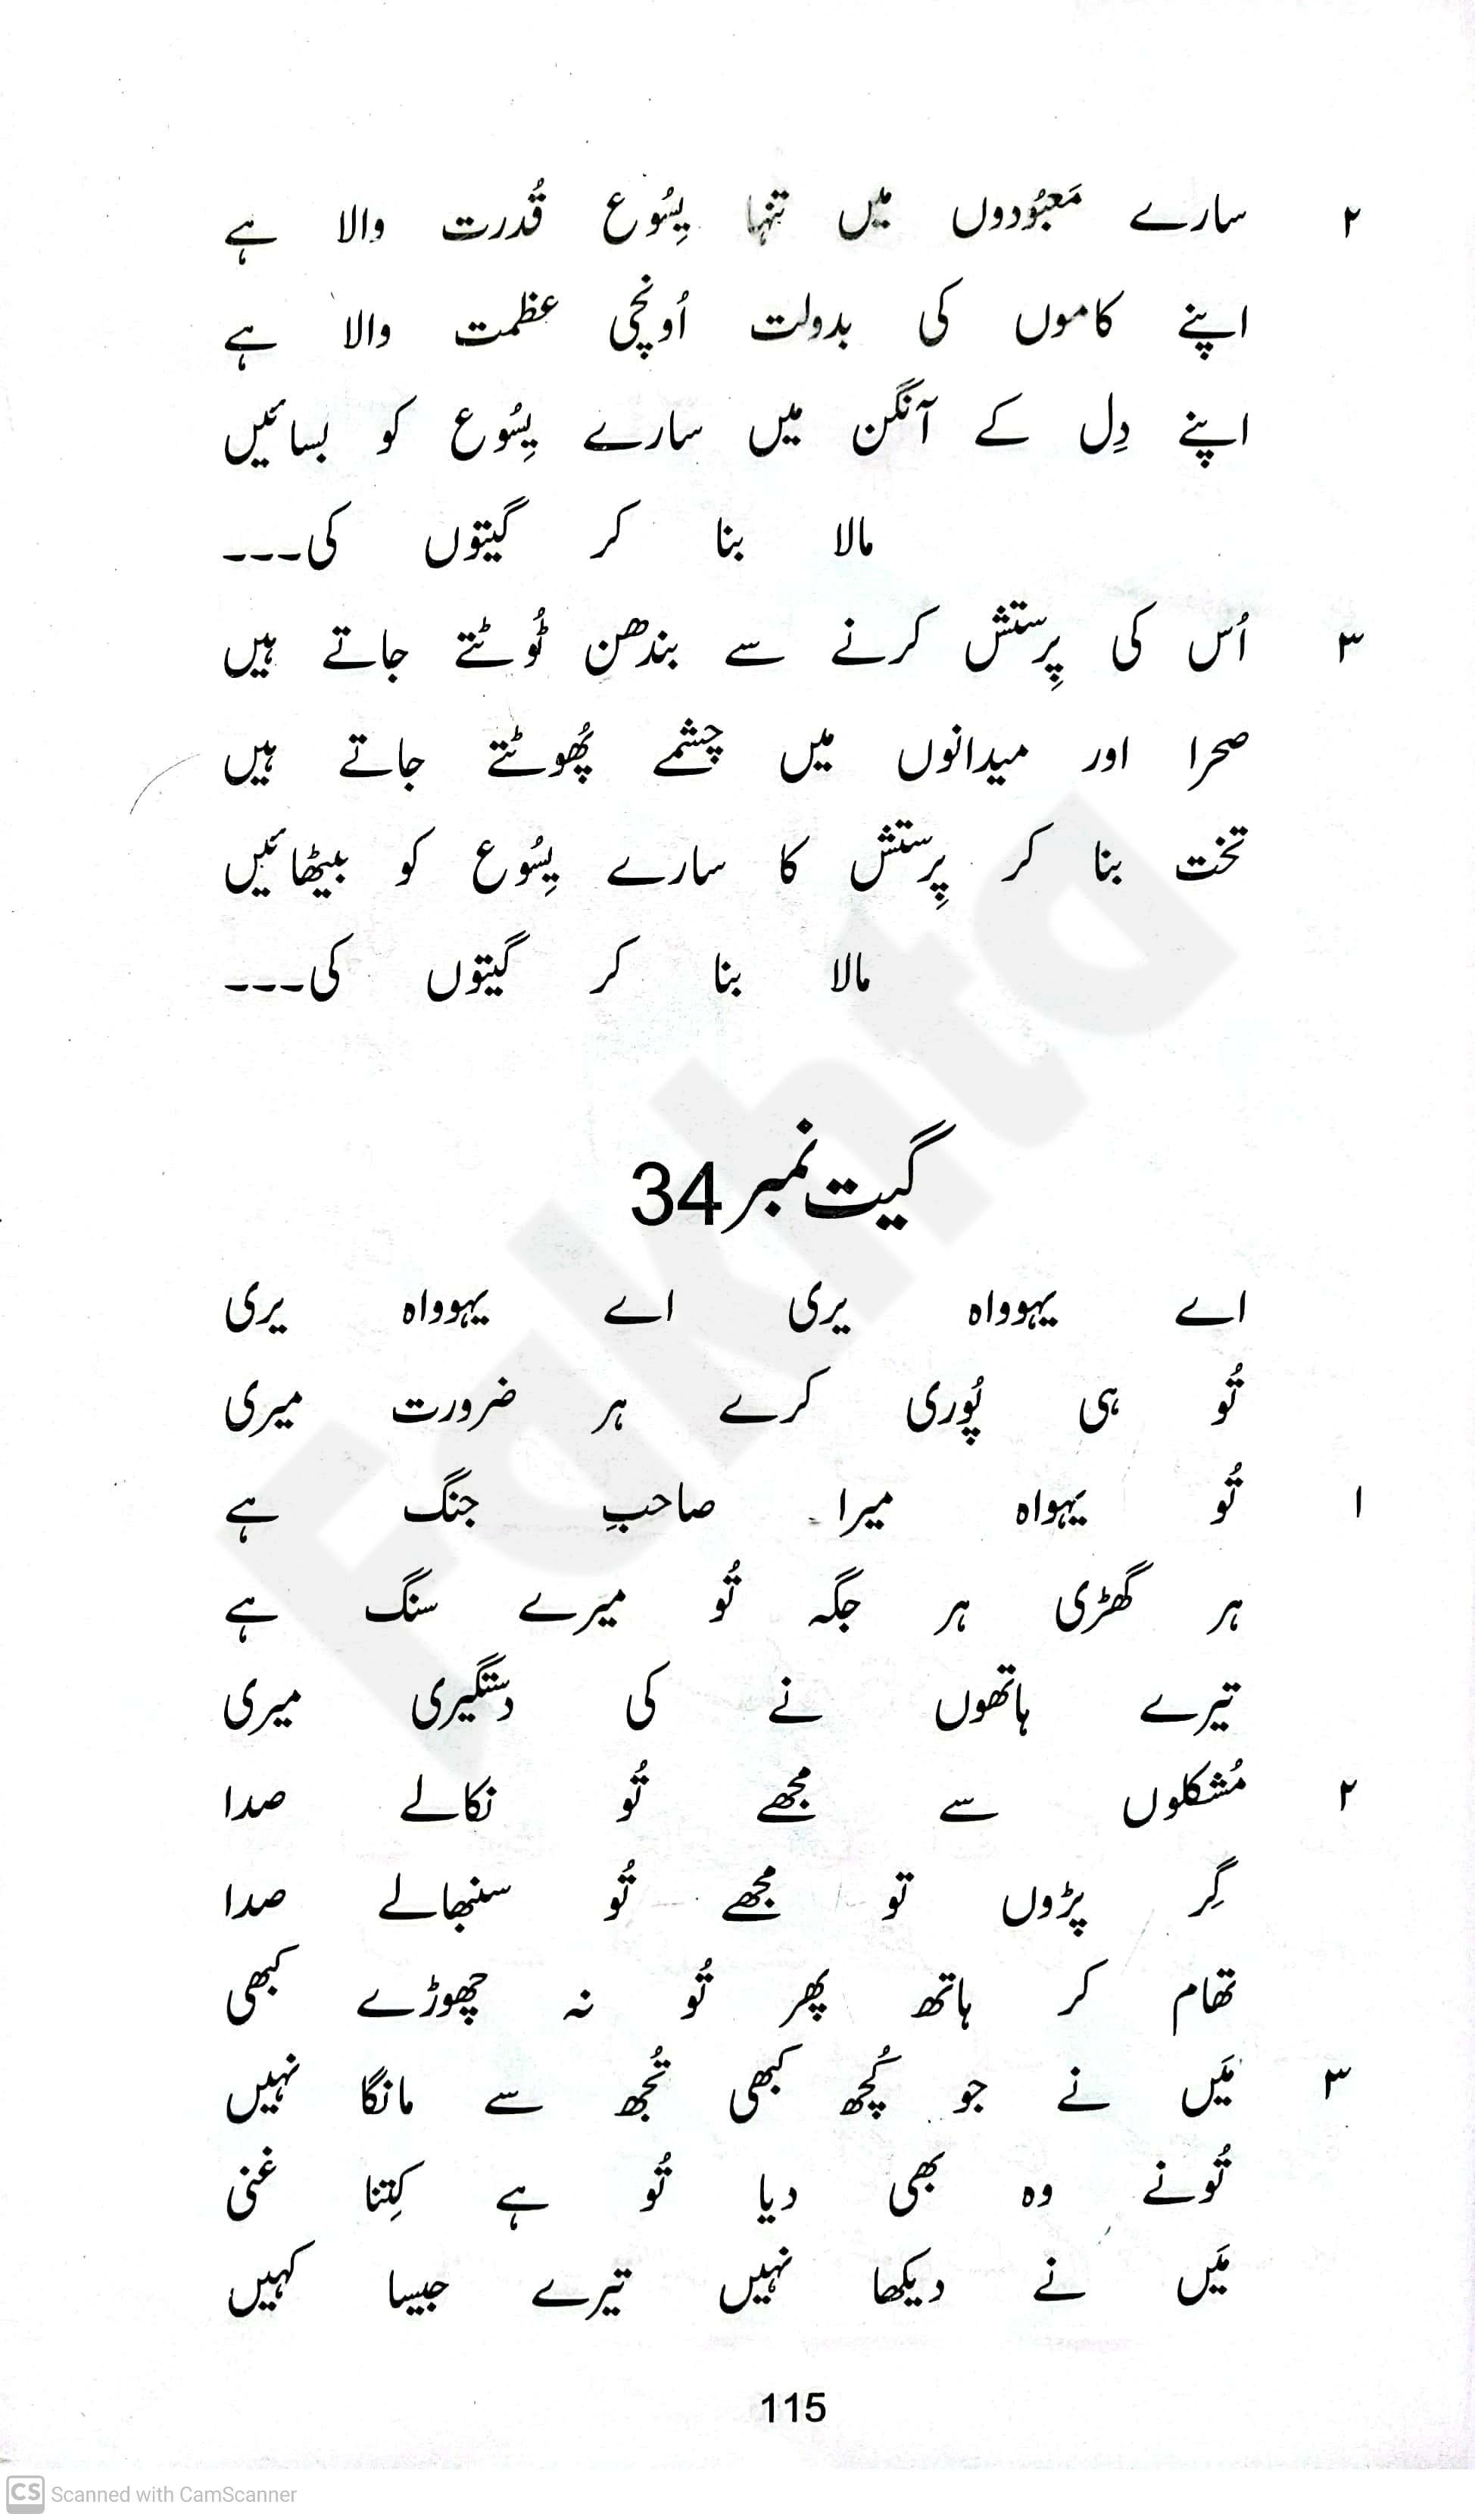 ۲ سارے مَعبُودوں میں تنہا یِسُوع قُدرت والا ہے
اپنے کاموں کی بدولت اُونچی عظمت والا ہے
اپنے دِل کے آنگن میں سارے یِسُوع کو بسائیں
مالا بنا کر گیتوں کی۔۔۔
۳ اُس کی پرِستش کرنے سے بندھن ٹُوٹتے جاتے ہیں
صحرا اور میدانوں میں چشمے پُھوٹتے جاتے ہیں
تخت بنا کر پرِستش کا سارے یِسُوع کو بیٹھائیں
مالا بنا کر گیتوں کی۔۔۔
گیت نمبر 34
اے یہوواہ یری اے یہوواہ یری
تُو ہی پُوری کرے ہر ضرورت میری
۱ تُو یہواہ میرا صاحبِ جنگ ہے
ہر گھڑی ہر جگہ تُو میرے سنگ ہے
تیرے ہاتھوں نے کی دستگیری میری
۲ مُشکلوں سے مجھے تُو نکالے صدا
گِر پڑوں تو مجھے تُو سنبھالے صدا
تھام کر ہاتھ پھر تُو نہ چھوڑے کبھی
۳ مَیں نے جو کُچھ کبھی تُجھ سے مانگا نہیں
تُونے وہ بھی دیا تُو ہے کِتنا غنی
مَیں نے دیکھا نہیں تیرے جیسا کہیں
115
Fakhta
CS Scanned with CamScanner